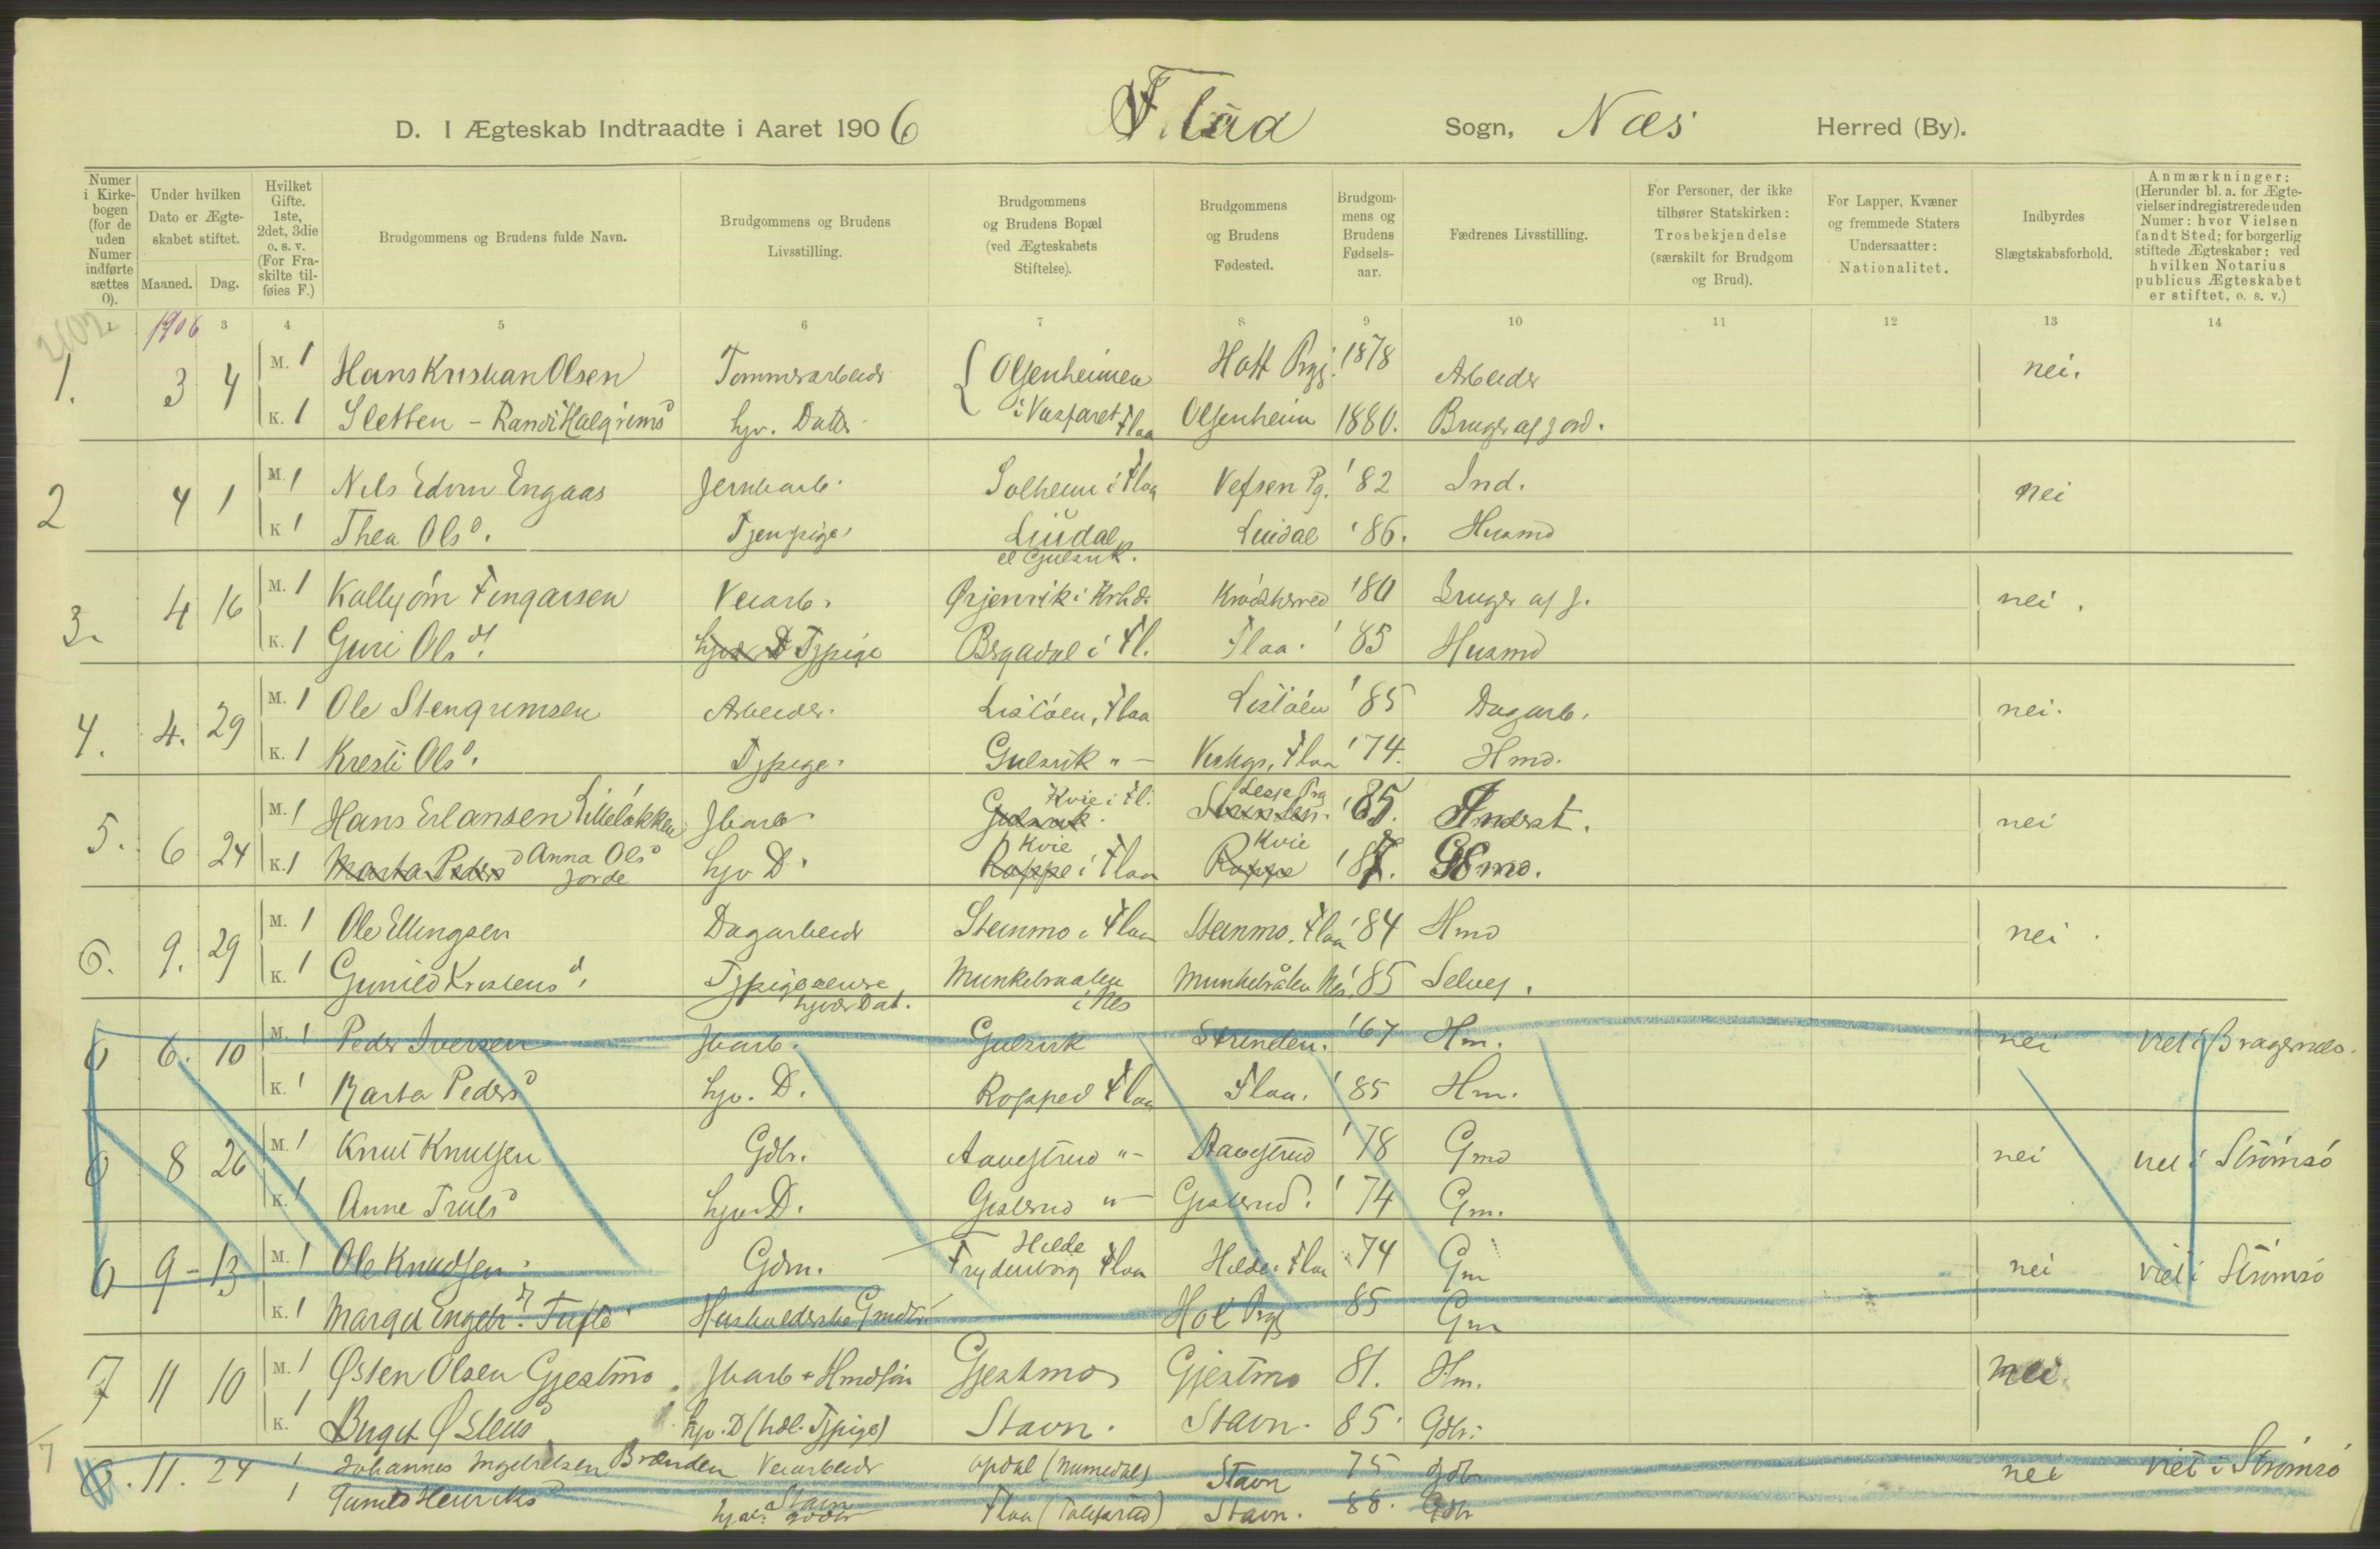 D. I Ægteskab Indtraadte i Aaret 1906 Flaa Sogn, Næs Herred (By).
Numer i Kirkebogen (for de uden Numer indførte sættes 0).
Under hvilken Dato er Ægteskabet stiftet.
Maaned. Dag.
Hvilket Gifte. 1ste, 2det, 3die o. s. v. (For Fraskilte tilføies F.)
Brudgommens og Brudens fulde Navn.
Brudgommens og Brudens Livsstilling.
Brudgommens og Brudens Bopæl (ved Ægteskabets Stiftelse).
Brudgommens og Brudens Fødested.
Brudgommens og Brudens Fødselsaar.
Fædrenes Livsstilling.
For Personer, der ikke tilhører Statskirken: Trosbekjendelse (særskilt for Brudgom og Brud).
For Lapper, Kvæner og fremmede Staters Undersaatter: Nationalitet.
Indbyrdes Slægtskabsforhold.
Anmærkninger: (Herunder bl. a. for Ægtevielser indregistrerede uden Numer: hvor Vielsen fandt Sted; for borgerlig stiftede Ægteskaber: ved hvilken Notarius publicus Ægteskabet er stiftet, o. s. v.)
1906 3 4 5 6 7 8 9 10 11 12 13 14
1. 3 4 M. 1 Hans Kristian Olsen Tommerarbeider Olsenheimen Hatt Prgj. 1878 Arbeider nei.
K. 1 Sletten - Randi Halgrimsd i Vasfaret Flaa Olsenheim 1880. Bruger af jord.
hjv. Datter
2 4 1 M. 1 Nils Edvin Engaas Jernbarb. Solheim i Flaa Vefsen Pg. '82 Ind. nei
K 1 Thea Olsd. Tjenpige. Liudal Liudal '86. Husmd
el Gulsvik.
3. 4 16 M. 1 Kolbjørn Fingarsen Veiarb. Ørjenvik i Krhd. Krødsherred '80 Bruger af j. nei.
K. 1 Guri Olsd. hjv. D Tjpige Bergadal i Fl. Flaa. '85 Husmd
4. 4. 29 M. 1 Ole Stengrimsen Arbeider. Lisløen, Flaa Lisløen '85 Dagarb. nei.
K. 1 Kresti Olsd. Tjpige. Gulsvik " — Flaa '74. Hmd.
Kvie i Fl. Lesje Prg
5. 6 24 M. 1 Hans Erlansen Lilleløkken Jbarb. Gulsvik. '85. Inderst. nei
Anna Olsd Kvie Kvie
K. 1 Marta Pedersd Jorde hjv D. Roppe i Flaa Roppe '87. Gmd.
6. 9. 29 M. 1 Ole Ellingsen Dagarbeider Steinmo i Flaa Steinmo. Flaa '84 Hmd nei.
K. 1 Gunild Kristensd. Tjpige Munkebraaten Munkebråten Nes. '85 Selvej.
hjvær Dat. i Nes
0 6. 10 M. 1 Peder Iversen Jbarb. Gulsvik Strinden. '67 Hm. nei viet i Bragernæs.
K. 1 Marta Pedersd hjv. D. Flaa Flaa. '85 Hm.
0 8 26 M. 1 Knut Knutsen Gdbr. Aavestrud "— Aavestrud '78 Gmd nei viet i Strømsø
K. 1 Anne Trulsd hjv. D. Gislerud "— Gislerud. '74 Gm.
Hilde
0 9 - 13 M. 1 Ole Knudsen. Gdm. Frydenborg Flaa Hilde i Flaa 74 Gm nei viet i Strømsø
K. 1 Margit Tufte. Hol Prgj 85 Gm
7 11 10 M. 1 Østen Olsen Gjestmo. Jbarb + Hmdsøn Gjestmo Gjestmo 81. Hm. nei.
K. 1 Birgit Østensd hjv. D (hdl. Tjpige) Stavn. Stavn. 85. Gdbr.
0. 11. 24 1 Johannes Ingebretsen Brænden Veiarbeider Opdal (Numedal) Stavn 75 gdb nei viet i Strømsø
1 Gunild Henriksd Stavn Flaa Stavn. 88. Gdbr